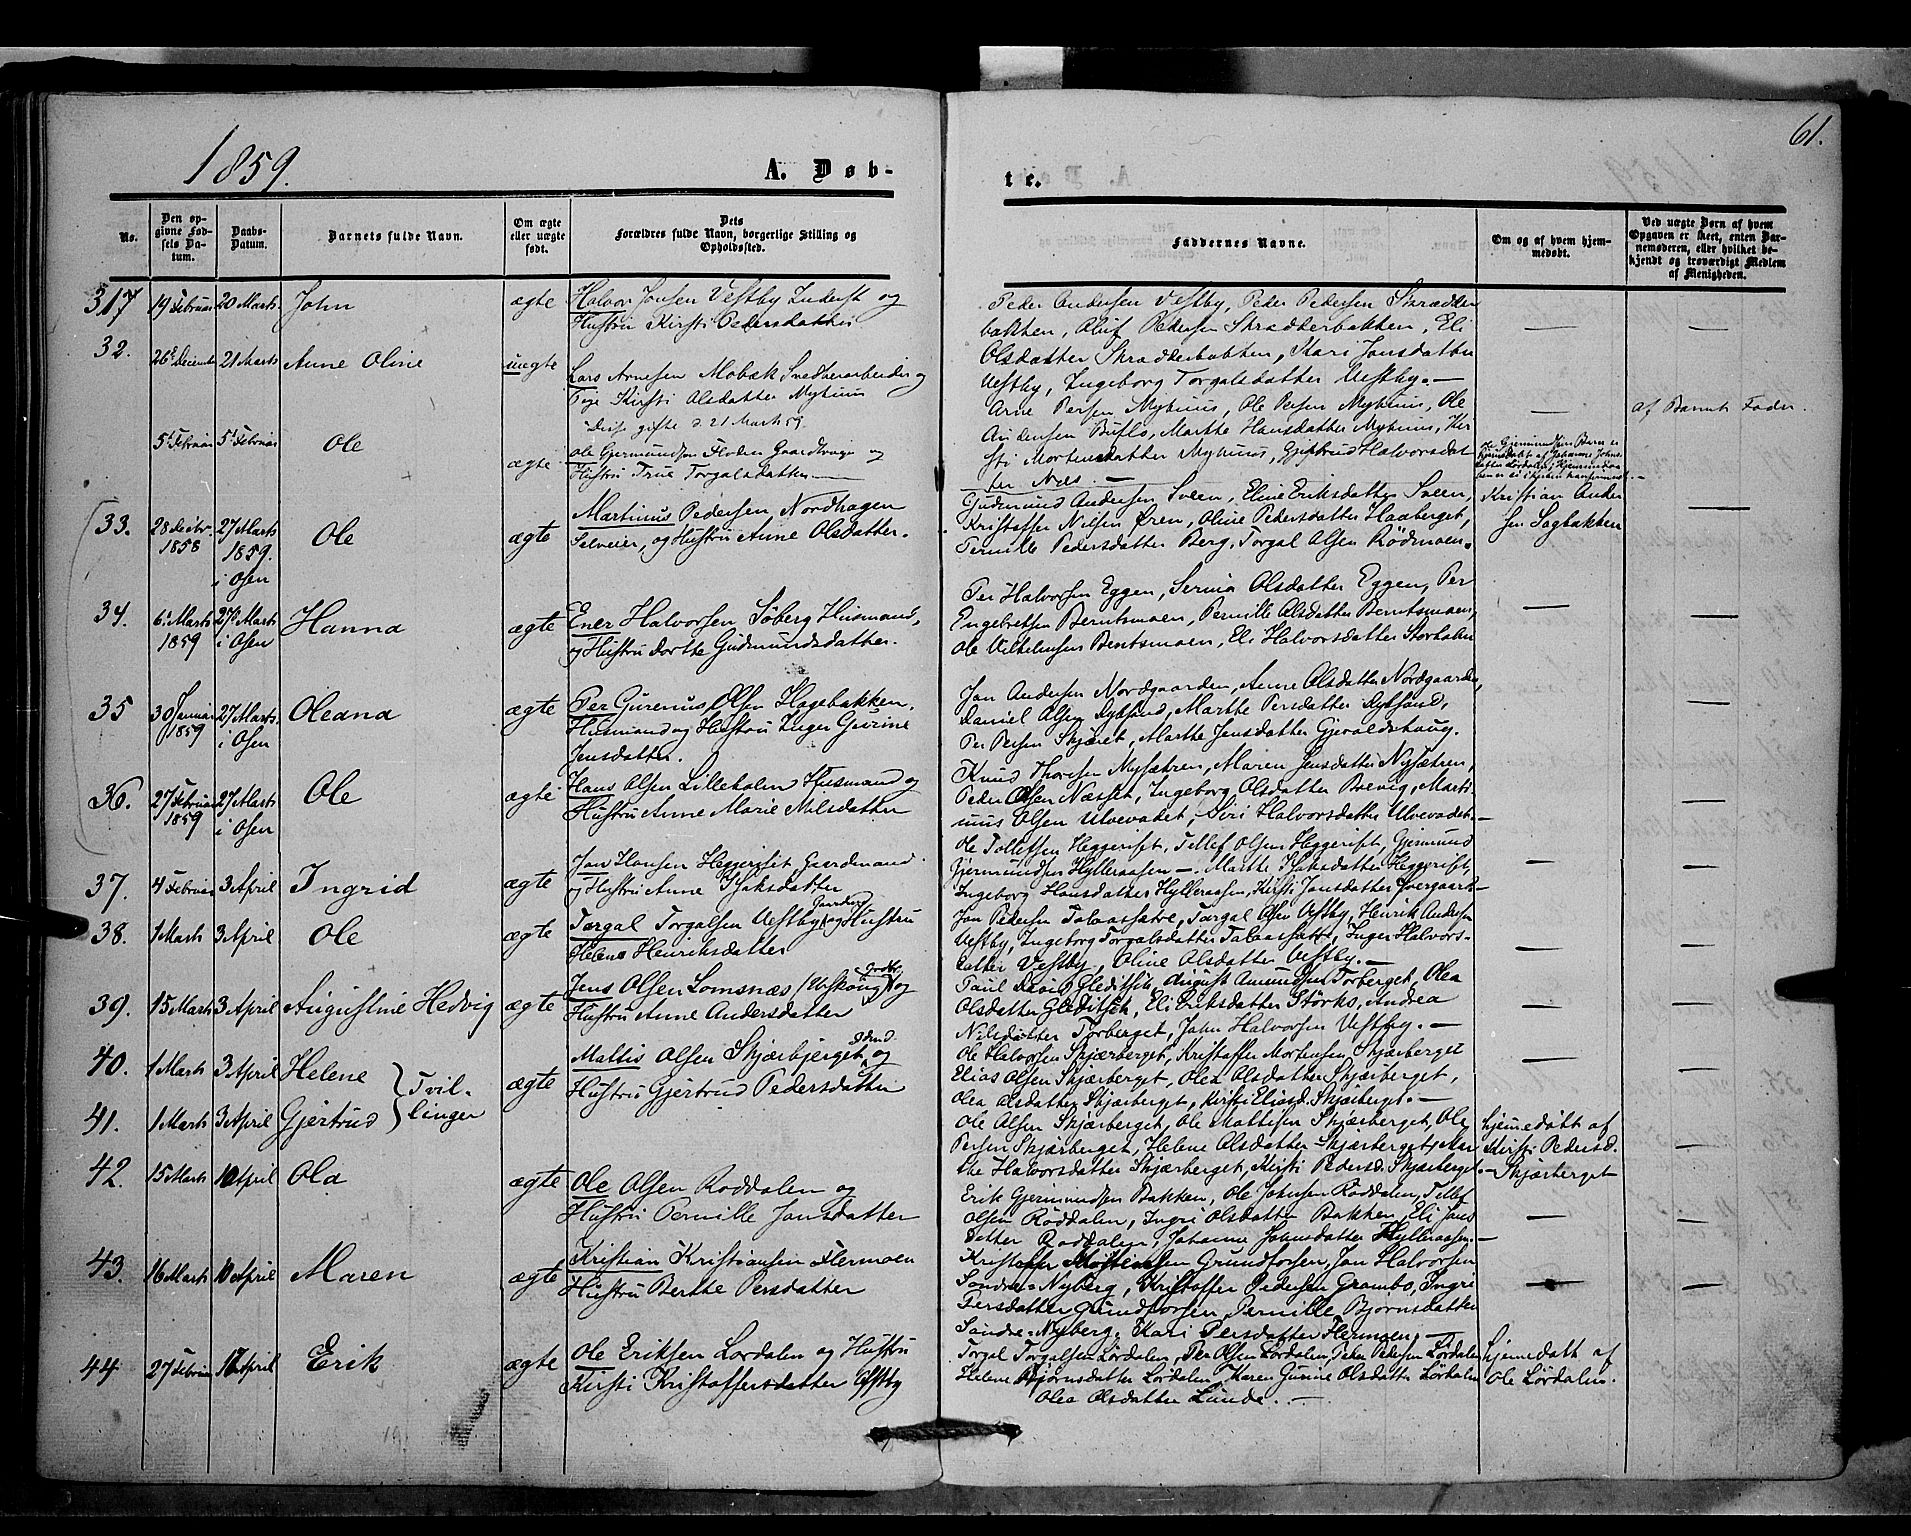 1859.
A. Døb-
te.
61.
No.
Den opgivne Fødsels Datum.
Daabs-Datum.
Barnets fulde Navn.
Om ægte eller uægte født.
Dets Forældres fulde Navn, borgerlige Stilling og Opholdssted.
Faddernes Navne.
Om og af hvem hjemmedøbt.
Ved uægte Børn af hvem Opgaven er skeet, enten Barnemoderen, eller hvilket bekjendt og troværdigt Medlem af Menigheden.
317 19 Februar 20 Marts John ægte Halvor Jonsen Vestby Inderst og
Hustru Kirsti Pedersdatter
Peder Andersen Vestby, Peder Pedersen Skrædder
bakken, Oluf Pedersen Skrædderbakken, Eli
Olsdatter Skrædderbakken, Kari Jonsdatter
Vestby, Ingeborg Torgalsdatter Vestby. —
32. 26d December 21 Marts Anne Oline uægte Lars Arnesen Mobæk Snedkerarbeider og
Pige Kirsti Olsdatter Myhuus
disse gifte d. 21 Marts 59
Arne Persen Myhuus, Ole Persen Myhuus, Ole
Andersen Buflo, Marthe Hansdatter Myhuus, Kir
sti Mortensdatter Myhuus, Gjertrud Halvorsdat
ter Næs. —
af Barnets Fader.
5t Februar 5t Februar Ole ægte Ole Gjermundsen Floden Gaardbruger og
Hustru True Torgalsdatter
Ole Gjermundsens Barn er
hjemmedøbt af Johanne Johns-
datter Lørdalen
33. 28 Decbr. 1858 27 Marts 1859. i Osen Ole ægte Martinus Pedersen Nordhagen
Selveier, og Hustru Anne Olsdatter.
Gudmund Andersen Sveen, Eline Eriksdatter Sveen,
Kristoffer Nilsen Øren, Oline Pedersdatter Haaberget,
Pernille Pedersdatter Berg, Torgal Olsen Rødmoen.
Kristian Ander
sen Sagbakken
34. 6t Marts 1859 27d Marts i Osen Hanna ægte Ener Halvorsen Søberg Husmand,
og Hustru Dorthe Gudmundsdatter.
Per Halvorsen Eggen, Serina Olsdatter Eggen, Per
Engebretsen Berntsmoen, Pernille Olsdatter Berntsmoen,
Ole Vilhelmsen Berntsmoen, Eli Halvorsdatter Storholm
35 30 Januar 1859 27 Marts i Osen Oleana ægte Per Gurenius Olsen Hagebakken,
Husmand og Hustru Inger Gurine
Jensdatter.
Jon Andersen Nordgaarden, Anne Olsdatter Nordgaarden,
Daniel Olsen Sydsund, Marthe Persdatter Sydsund,
Per Persen Skjæret, Marthe Jensdatter Gjevaldshaug.
36. 27 Februar 1859 27 Marts i Osen Ole ægte Hans Olsen Lilleholm Husmand og
Hustru Anne Marie Nilsdatter
Knud Thoresen Nysætren, Maren Jensdatter Nysætren,
Peder Olsen Næsset, Ingeborg Olsdatter Brevig, Marti
nus Olsen Ulvevadet, Siri Halvorsdatter Ulvevadet. —
37. 4 Februar 3 April Ingrid ægte Jon Hansen Heggerift Gaardmand
og Hustru Anne Isaksdatter
Ole Tollefsen Heggerift, Tollef Olsen Heggerift, Gjermund
Gjermundsen Hylleraasen —. Marthe Isaksdatter Heggerift,
Ingeborg Hansdatter Hylleraasen, Kirsti Jonsdatter Øvergaard —
38. 1 Marts 3 April Ole ægte Torgal Torgalsen Vestby Gaardbr. og Hustru
Helene Henriksdatter
Jon Pedersen Talaassætre, Torgal Olsen Vestby, Henrik Andersen
Vestby, Ingeborg Torgalsdatter Talaassætre, Inger Halvors-
datter Vestby, Oline Olsdatter Vestby. —
39. 15 Marts 3 April Augustine Hedvig ægte Jens Olsen Lomsnæs (Vestvang) Gaardbr. og
Hustru Anne Andersdatter
Paul David Gleditsch, August Amundsen Torberget, Olea
Olsdatter Gleditsch, Eli Eriksdatter Størks, Andrea
Nilsdatter Torberget, John Halvorsen Vestby. —
40. 1 Marts 3 April Helene
41. 1 Marts 3 April Gjertrud } Tvil-
linger ægte Mattis Olsen Skjærbjerget Gdmd. og
Hustru Gjertrud Pedersdatter
Ole Halvorsen Skjærberget, Kristoffer Mortensen Skjærberget
Elias Olsen Skjærberget, Olea Olsdatter Skjærberget,
Olea Olsdatter Skjærberget, Kirsti Eliasd. Skjærberget. —
Ole Olsen Skjærberget, Ole Mattisen Skjærberget, Ole
Persen Skjærberget, Helene Olsdatter Skjærberget, Mar
the Halvorsdatter Skjærberget, Kirsti Pedersd. Skjærberget. —
hjemedøbt af
Kirsti Pedersd.
Skjærberget
42. 15 Marts 10 April Ola ægte Ole Olsen Røddalen og
Hustru Pernille Jonsdatter
Erik Gjermundsen Bakken, Ole Johnsen Røddalen, Tollef
Olsen Røddalen, Ingri Olsdatter Bakken, Eli Jons
datter Røddalen, Johanne Johnsdatter Hylleraasen. —
43. 16 Marts 10 April Maren ægte Kristian Kristiansen Flermoen
Hustru Berthe Persdatter
Kristoffer Grundforsen, Jon Halvorsen
Søndre-Nyberg, Kristoffer Pedersen Grambo, Ingri
Persdatter Grundforsen, Pernille Bjørnsdatter
Søndre-Nyberg, Kari Persdatter Flermoen, —
44 27 Februar 17 April Erik ægte Ole Eriksen Lørdalen og Hustru
Kirsti Kristoffersdatter Vestby
Torgal Torgalsen Lørdalen, Per Olsen Lørdalen, Peder Pedersen Lørdalen
Helene Bjørnsdatter Lørdalen, Maren Gurine Olsdatter Lørdalen
Olea Olsdatter Lunde. —
hjemedøbt af
Ole Lørdalen.